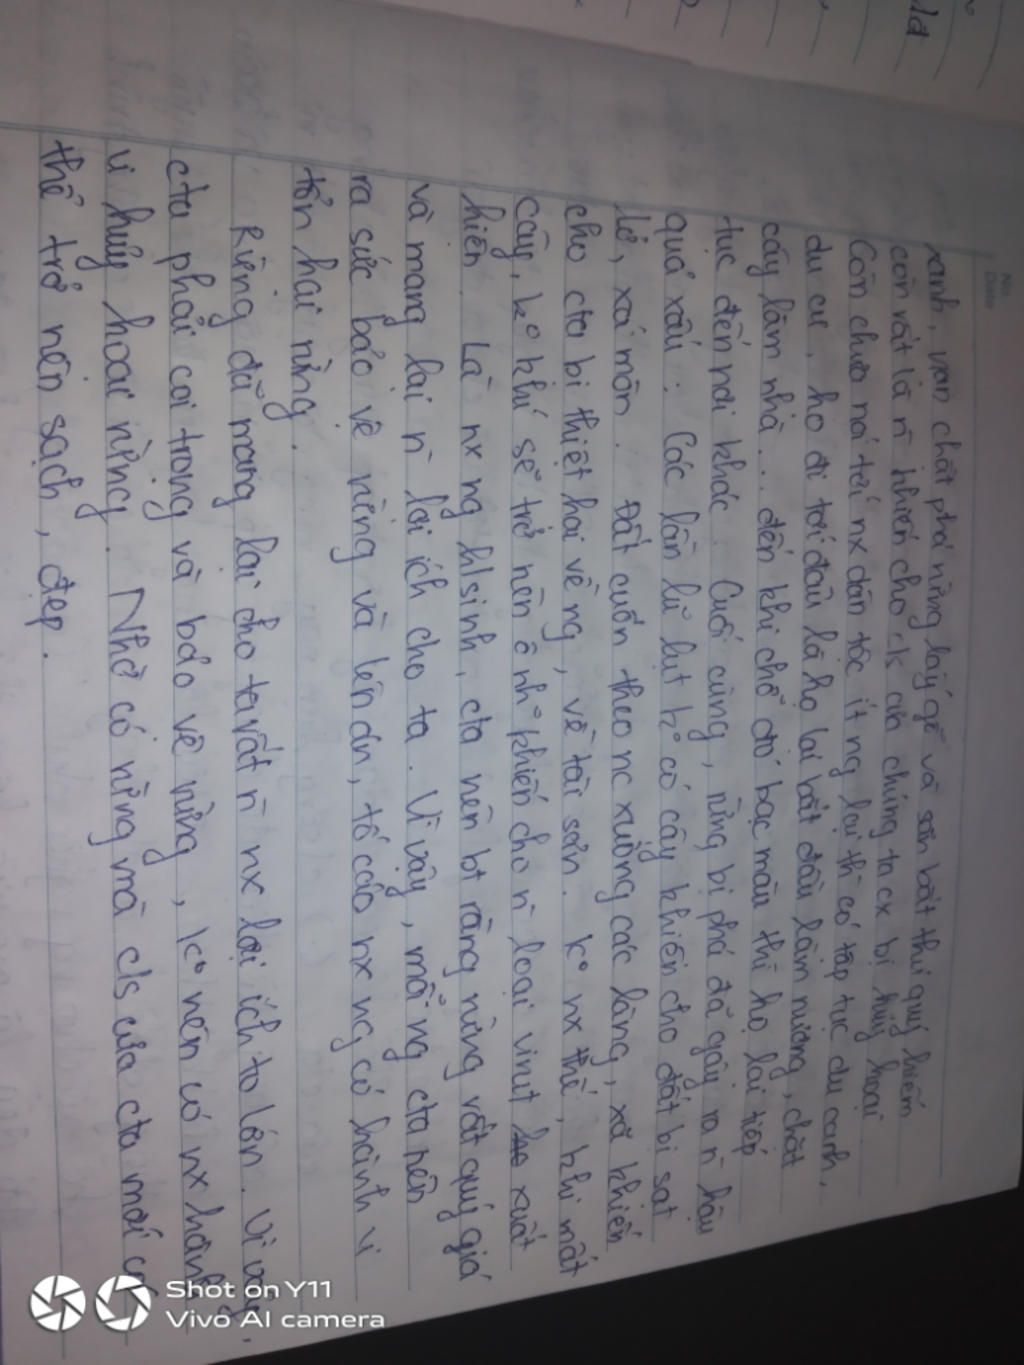 xanh, nạn chặt phá rừng lấy gỗ và săn bắt thú quý hiếm
còn rất là n̄ khiến cho c/s của chúng ta cx bị hủy hoại.
Còn chưa nói tới nx dân tộc ít ng lại thì có tập tục du canh,
du cư, họ đi tới đâu là họ lại bắt đầu làm nương, chặt
cây làm nhà... đến khi chỗ đó bạc màu thì họ lại tiếp
tục đến nơi khác. Cuối cùng, rừng bị phá đã gây ra n̄ hậu
quả xấu: Các lần lũ lụt k° có cây khiến cho đất bị sạt
lở, xá mòn. Đất cuốn theo nc xuống các làng, xã khiến
cho cta bị thiệt hại về ng, về tài sản. K° nx thế, khi mất
cây, k° khí sẽ trở nên ô nh° khiến cho n̄ loại virut xuất
hiện. Là nx ng h/sinh, cta nên bt rằng rừng rất quý giá
và mang lại n̄ lợi ích cho ta. Vì vậy, mỗi ng cta nên
ra sức bảo vệ rừng và lên án, tố cáo nx ng có hành vi
tổn hại rừng.
Rừng đã mang lại cho ta rất n̄ nx lợi ích to lớn. Vì vậy,
cta phải coi trọng và bảo vệ rừng, k° nên có nx hành
vi hủy hoại rừng. Nhờ có rừng mà c/s của cta mới có
thể trở nên sạch, đẹp.
No.
Date
Shot on Y11
Vivo AI camera